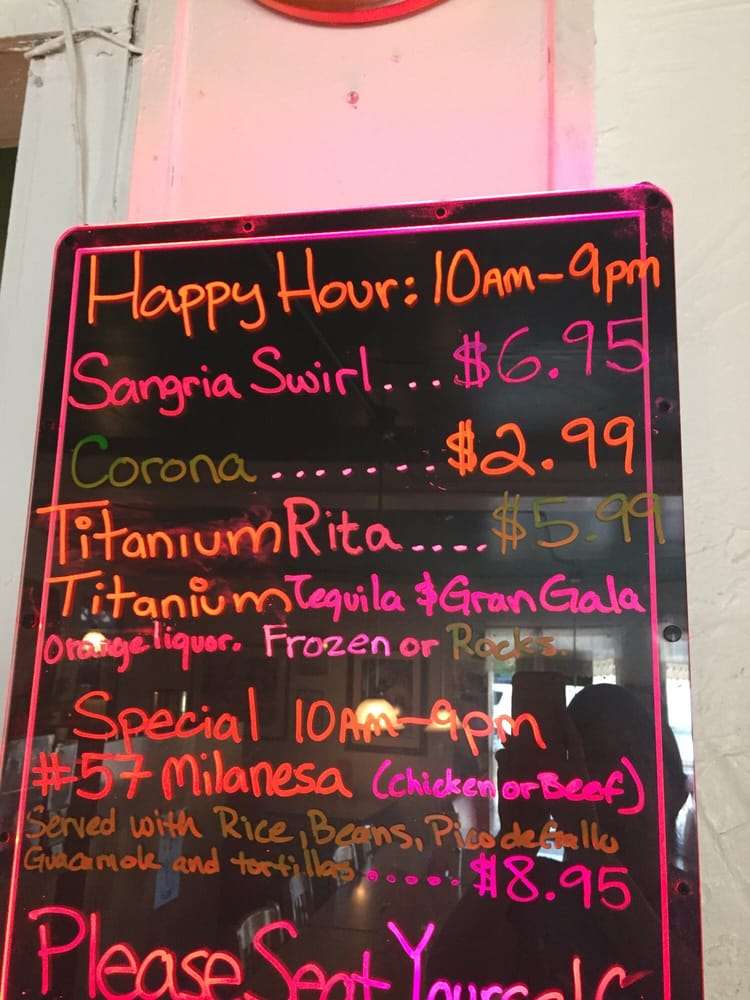 Happy Hour: 10AM-9pm
Sangria Swirl... $6.95
Corona ....... $2.99
Titanium Rita.... $5.99
Titanium Tequila & Gran Gala
Orange liquor. Frozen or Rocks.
Special 10AM-9pm
#57 Milanesa (chicken or Beef)
Served with Rice, Beans, Pico de Gallo
Guacamole and tortillas..... $8.95
Please Seat Yourself